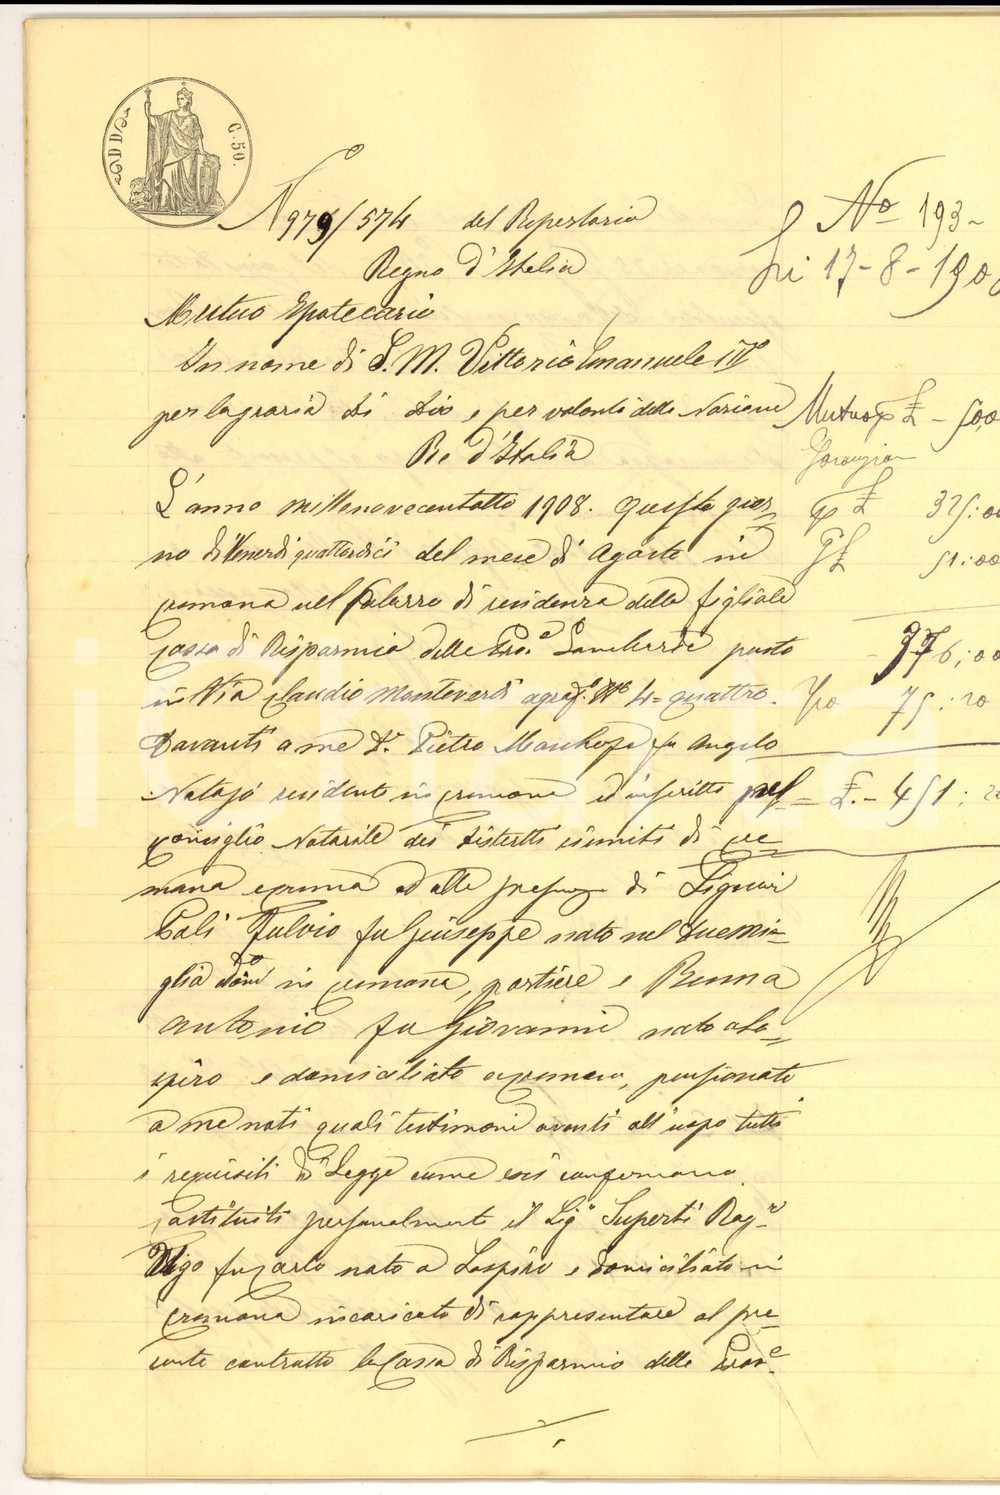 C. 50.
N 979/574 del Repertorio
Regno d'Italia
Mutuo Ipotecario
In nome di S. M. Vittorio Emanuele III°
per la grazia di Dio e per volontà della Nazione
Re d'Italia
L'anno millenovecentotto 1908. Questo gior=
no di Venerdì quattordici del mese di Agosto in
Cremona nel Palazzo di residenza della figliale
Cassa di Risparmio delle Prov.e Lombarde posto
in Via Claudio Monteverdi N° 4= quattro.
Davanti a me D.r Pietro fu Angelo
Notajo residente in Cremona ed inscritto presso il
Consiglio Notarile dei distretti riuniti di Cre=
mona e Crema ed alla presenza di Signori
Poli Fulvio fu Giuseppe nato nel Duemi=
glia dom° in Cremona, portiere e Renna
Antonio fu Giovanni nato a So=
spiro e domiciliato a Cremona, pensionato
a me noti quali testimoni aventi all'uopo tutti
i requisiti di Legge come essi confermano
Costituiti personalmente il Sig.r Superti Rag.r
Ugo fu Carlo nato a Sospiro e domiciliato in
Cremona incaricato di rappresentare al pre=
sente contratto la Cassa di Risparmio delle Prov.e
N° 193-
li 17-8-190
Mutuo £ - 50,0
£ 325:00
£ 51:00
- 376,00
75:20
= £.- 451:2